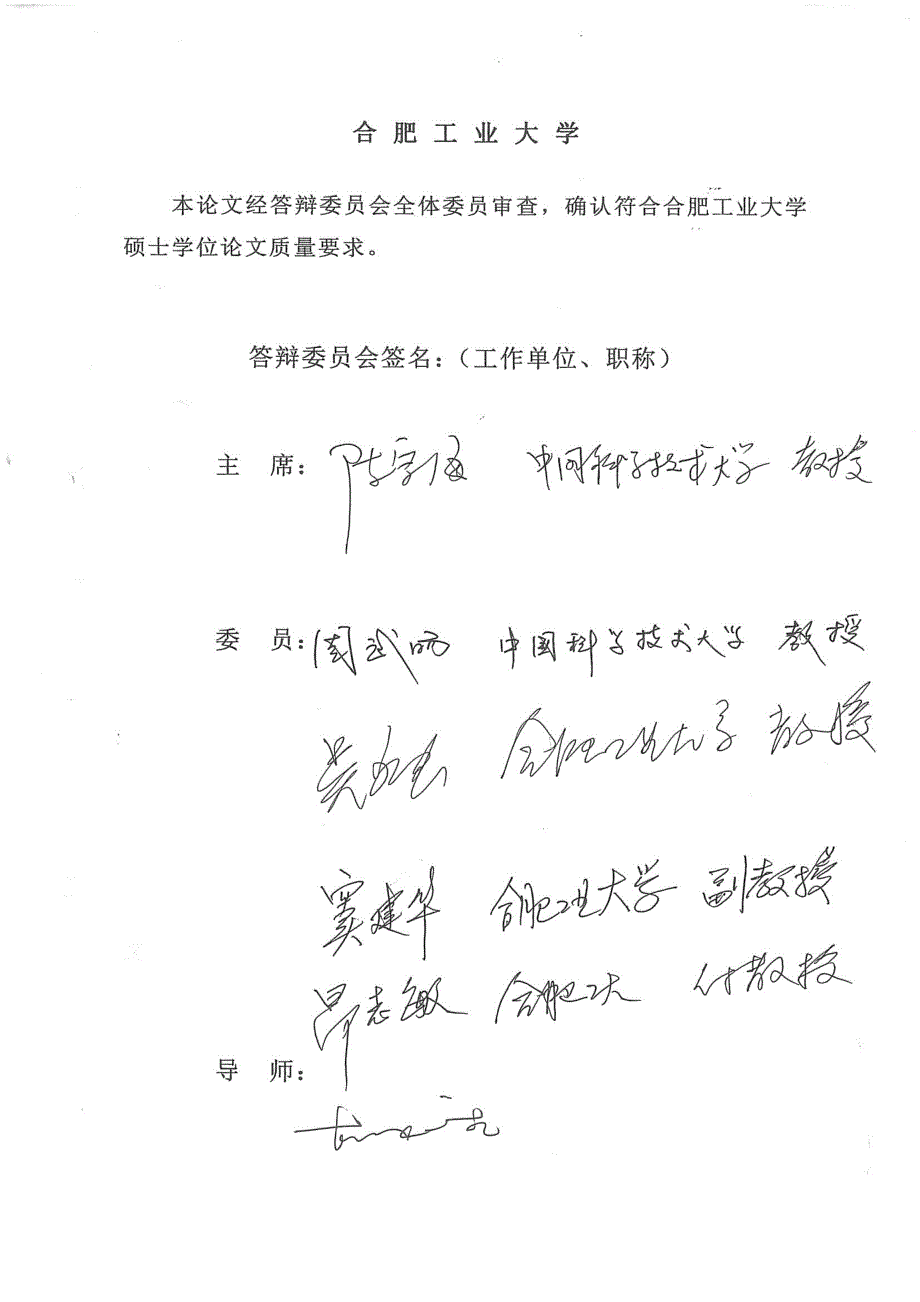 合肥工业大学
本论文经答辩委员会全体委员审查，确认符合合肥工业大学
硕士学位论文质量要求。
答辩委员会签名：（工作单位、职称）
主 席： 陈宗海 中国科学技术大学 教授
委 员： 周武旸 中国科学技术大学 教授
吴永忠 合肥工业大学 教授
窦建华 合肥工业大学 副教授
昂志敏 合肥工大 付教授
导 师：